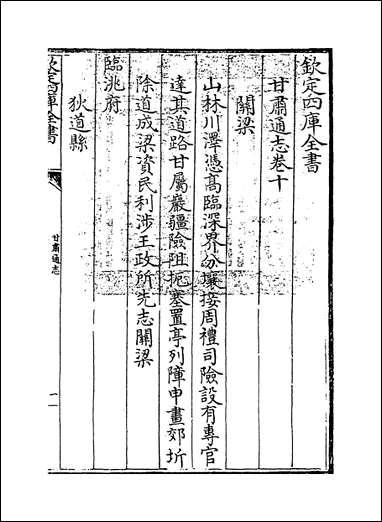 欽定四庫全書
甘肅通志卷十
關梁
山林川澤憑高臨深界分壤接周禮司險設有專官
達其道路甘屬巖疆險阻扼塞置亭列障申畫郊圻
除道成梁資民利涉王政所先志關梁
臨洮府
狄道縣
欽定四庫全書
甘肅通志